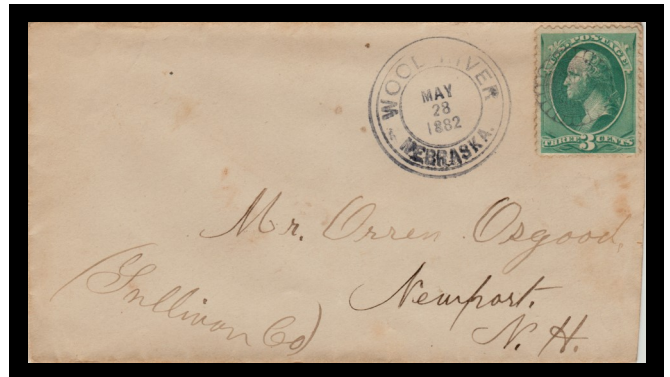 WOOD RIVER
MAY
28
1882
NEBRASKA.
U.S. POSTAGE
THREE 3 CENTS
Mr. Orren Osgood,
Newport.
N. H.
(Sullivan Co)